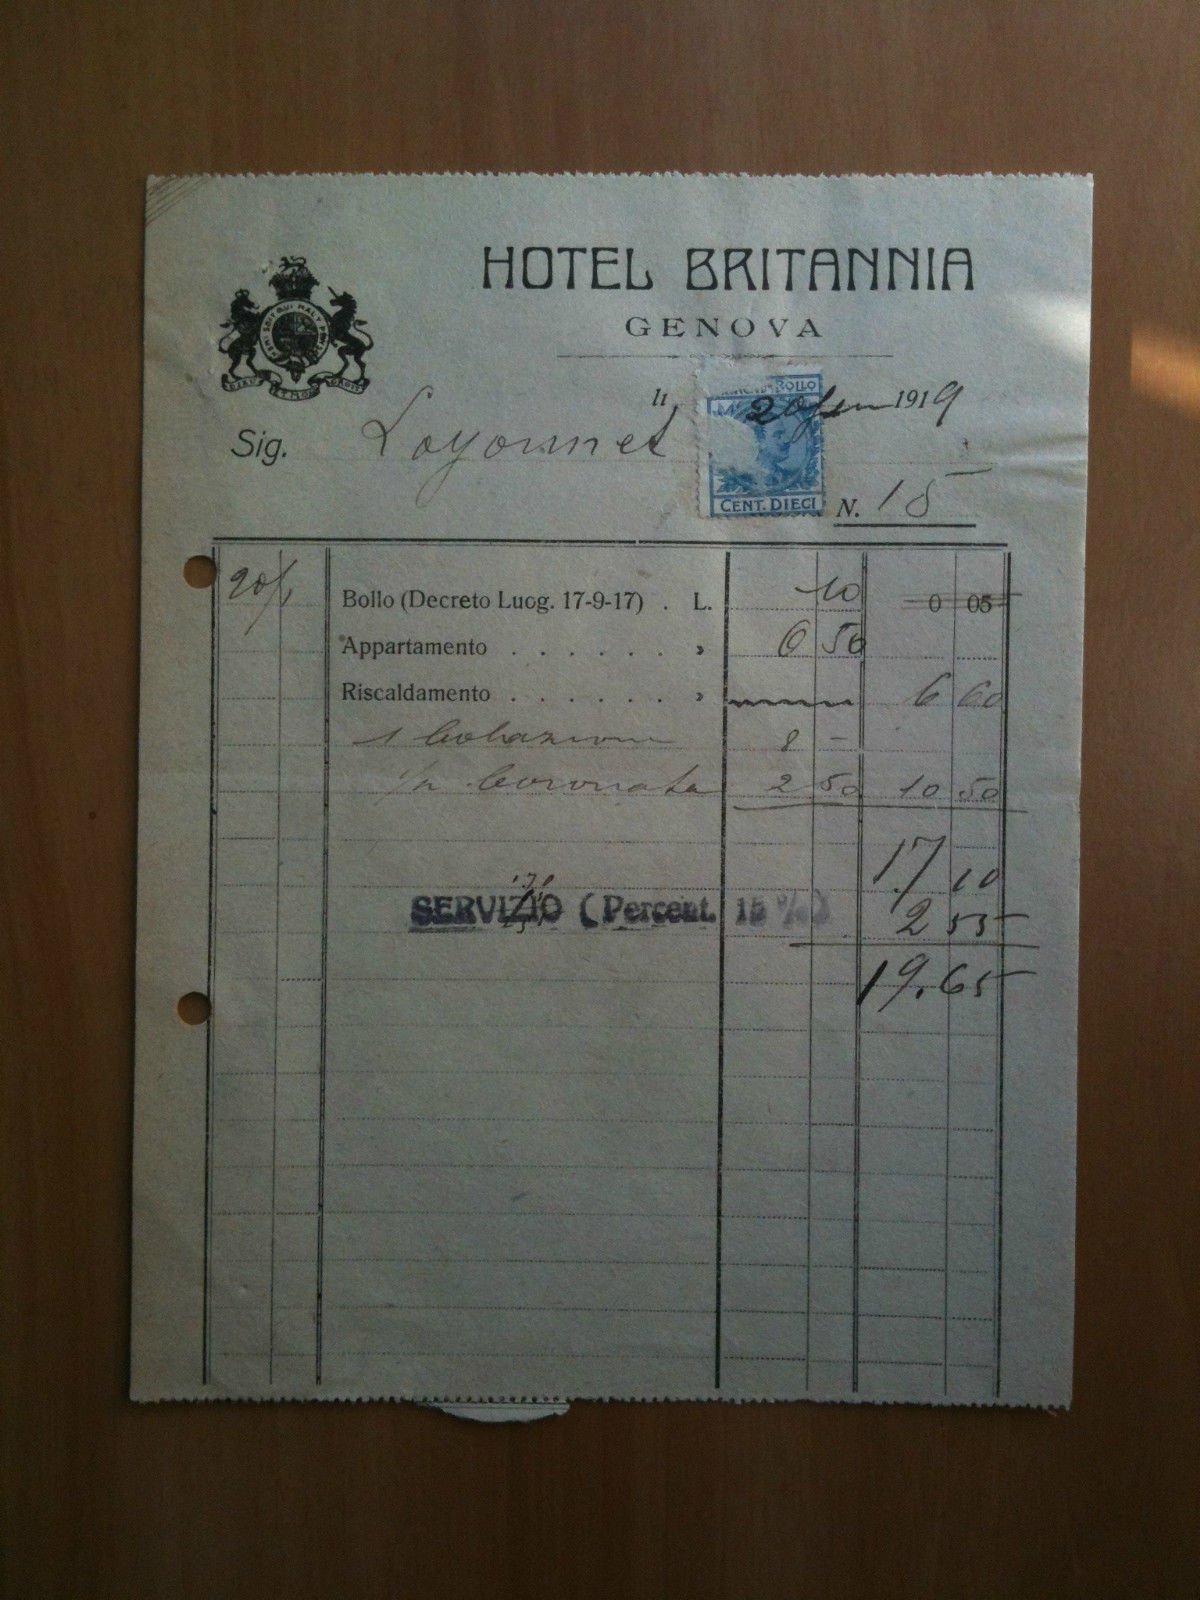 HOTEL BRITANNIA
GENOVA
HONI SOIT QUI MAL Y PENSE
DIEU ET MON DROIT
li 20 Gen 1919
BOLLO
CENT. DIECI
Sig. Loyonnet
N. 15
20/1 Bollo (Decreto Luog. 17-9-17) . L. 10 0 05
Appartamento . . . . . . . » 6 50
Riscaldamento . . . . . . » 6 60
1 Colazione 8 -
1/2 Coronata 2 50 10 50
17 10
SERVIZIO (Percent. 15 %) 2 55
19.65